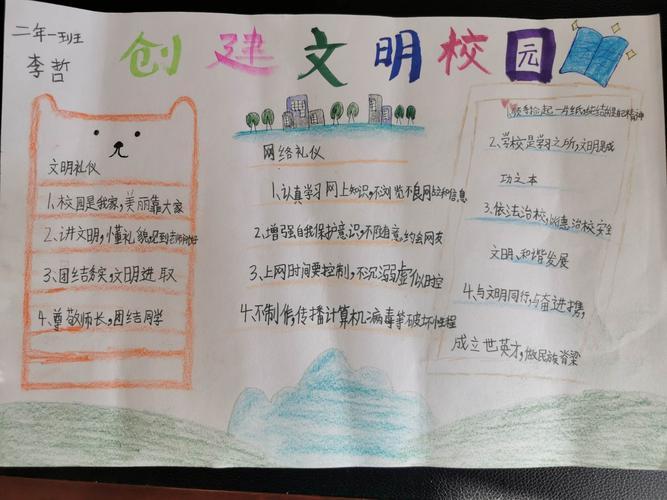 二年一班
李哲
创建文明校园
文明礼仪
1、校园是我家,美丽靠大家
2、讲文明,懂礼貌,见到老师问好
3、团结务实,文明进取
4、尊敬师长,团结同学
网络礼仪
1、认真学习网上知识,不浏览不良网站和信息
2、增强自我保护意识,不随意约会网友
3、上网时间要控制,不沉溺虚似时控
4、不制作,传播计算机病毒等破坏性程
顺手捡起一片纸,纯结的是自己精神
2、学校是学习之所,文明是成
功之本
3、依法治校,以德治校安全
文明、和谐发展
4、与文明同行,与奋进携,
成立世英才,做民族脊梁